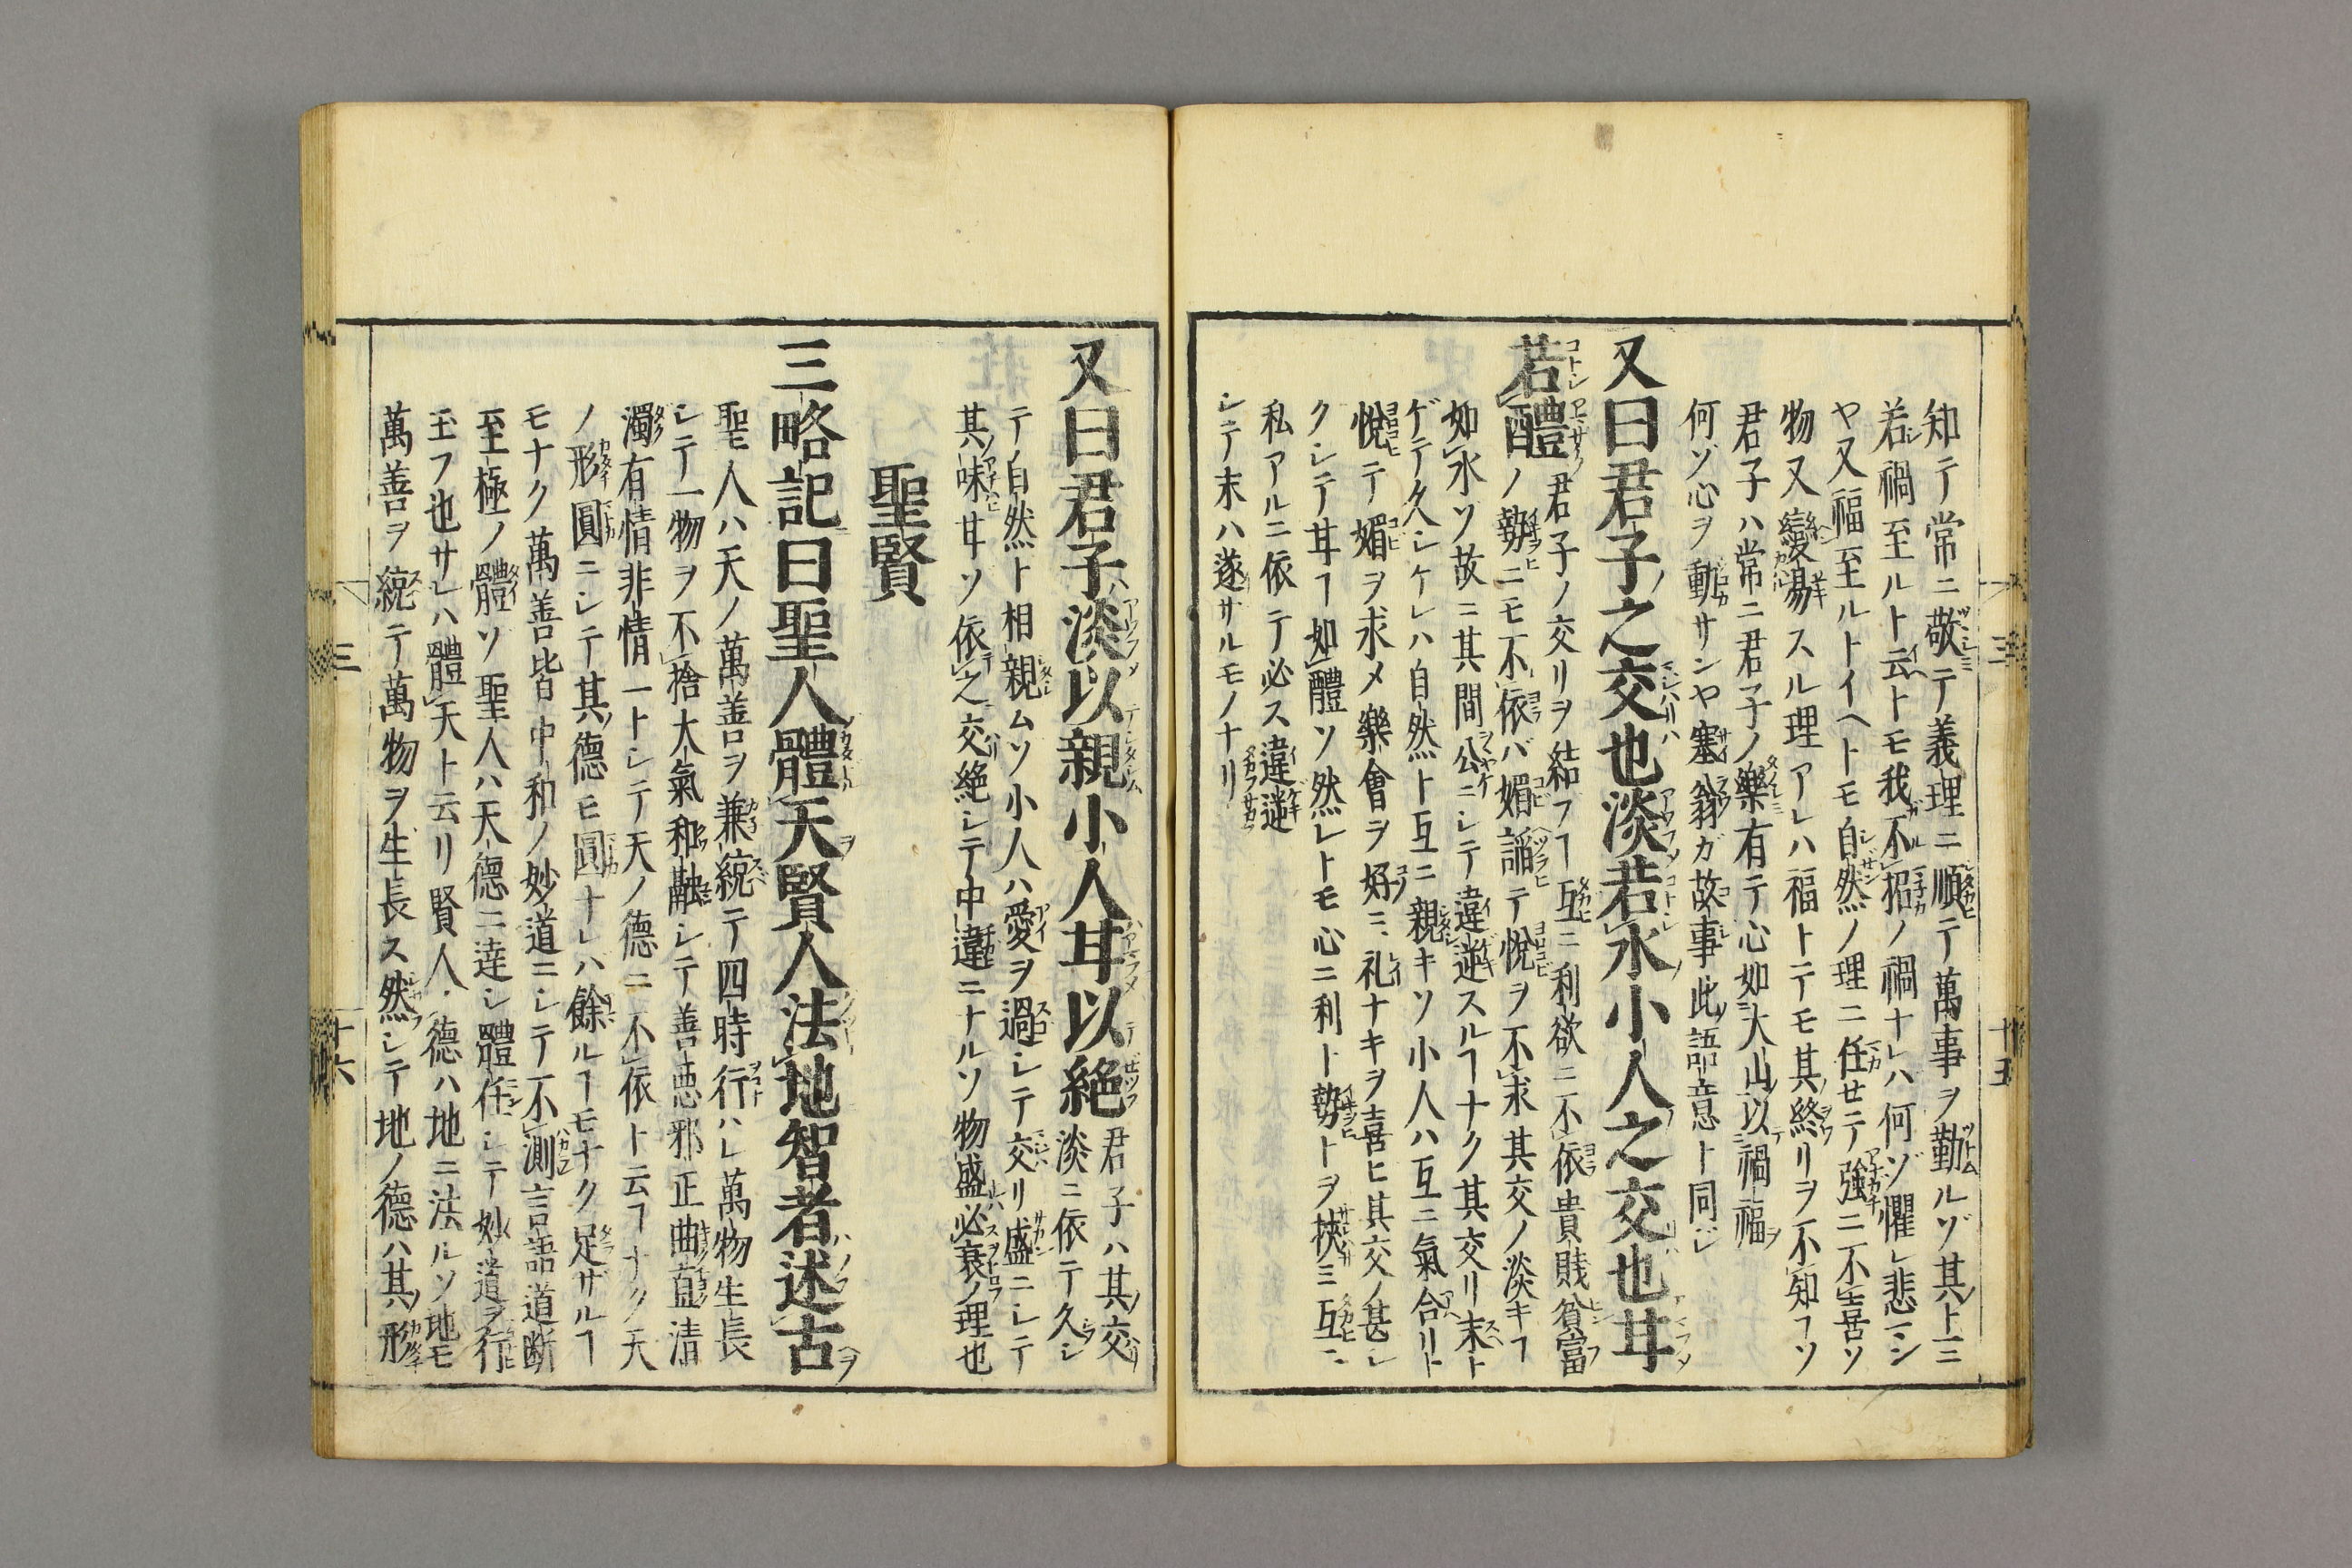 知テ常ニ敬テ義理ニ順テ萬事ヲ勤ルゾ其上ニ
若禍至ルト云トモ我不招ノ禍ナレハ何ゾ懼レ悲ーン
ヤ又福至ルトイヘトモ自然ノ理ニ任セテ強ニ不喜ソ
物又變易スル理アレハ福トテモ其終リヲ不知ヿソ
君子ハ常ニ君子ノ樂有テ心如大山以禍福
何ゾ心ヲ動サンヤ塞翁ガ故事此語意ト同ジ
又曰君子之交也淡若水小人之交也甘
若醴君子ノ交リヲ結フヿ互ニ利欲ニ不依貴賎貧富
ノ勢ニモ不依バ媚謟テ悅ヲ不求其交ノ淡キヿ
如水ソ故ニ其間公ニシテ違逆スルヿナク其交リ末ト
ゲテ久シケレハ自然ト互ニ親キソ小人ハ互ニ氣合リト
悅テ媚ヲ求メ樂會ヲ好ミ礼ナキヲ喜ヒ其交ノ甚シ
クシテ甘ヿ如醴ソ然レトモ心ニ利ト勢トヲ挾ミ互ニ
私アルニ依テ必ス違逆
シテ末ハ遂サルモノナリ
又曰君子淡以親小人甘以絕君子ハ其交
淡ニ依テ久シ
テ自然ト相親ムソ小人ハ愛ヲ過シテ交リ盛ニシテ
其味甘ソ依之交絕シテ中違ニナルソ物盛必衰ノ理也
聖賢
三略記曰聖人體天賢人法地智者述古
聖人ハ天ノ萬善ヲ兼統テ四時行ハレ萬物生長
シテ一物ヲ不捨大氣和融シテ善惡邪正曲直清
濁有情非情一トシテ天ノ德ニ不依ト云ヿナク天
ノ形圓ニシテ其德モ圓ナレハ餘ルヿモナク足ザルヿ
モナク萬善皆中和ノ妙道ニシテ不測言語道断
至極ノ體ソ聖人ハ天德ニ達シ體任シテ妙道ヲ行
玉フ也サレハ體天ト云リ賢人德ハ地ニ法ルソ地モ
萬善ヲ統テ萬物ヲ生長ス然シテ地ノ德ハ其形
三
十五
三
十六